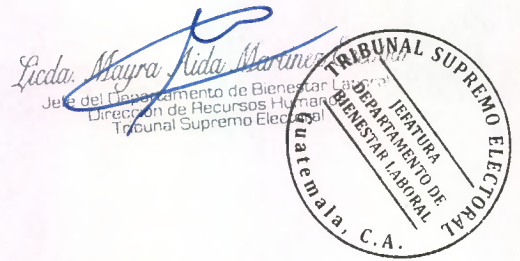 Licda. Mayra Aida Martínez
Jefe del Departamento de Bienestar Laboral
Dirección de Recursos Humanos
Tribunal Supremo Electoral
TRIBUNAL SUPREMO ELECTORAL
JEFATURA
DEPARTAMENTO DE
BIENESTAR LABORAL
Guatemala, C.A.